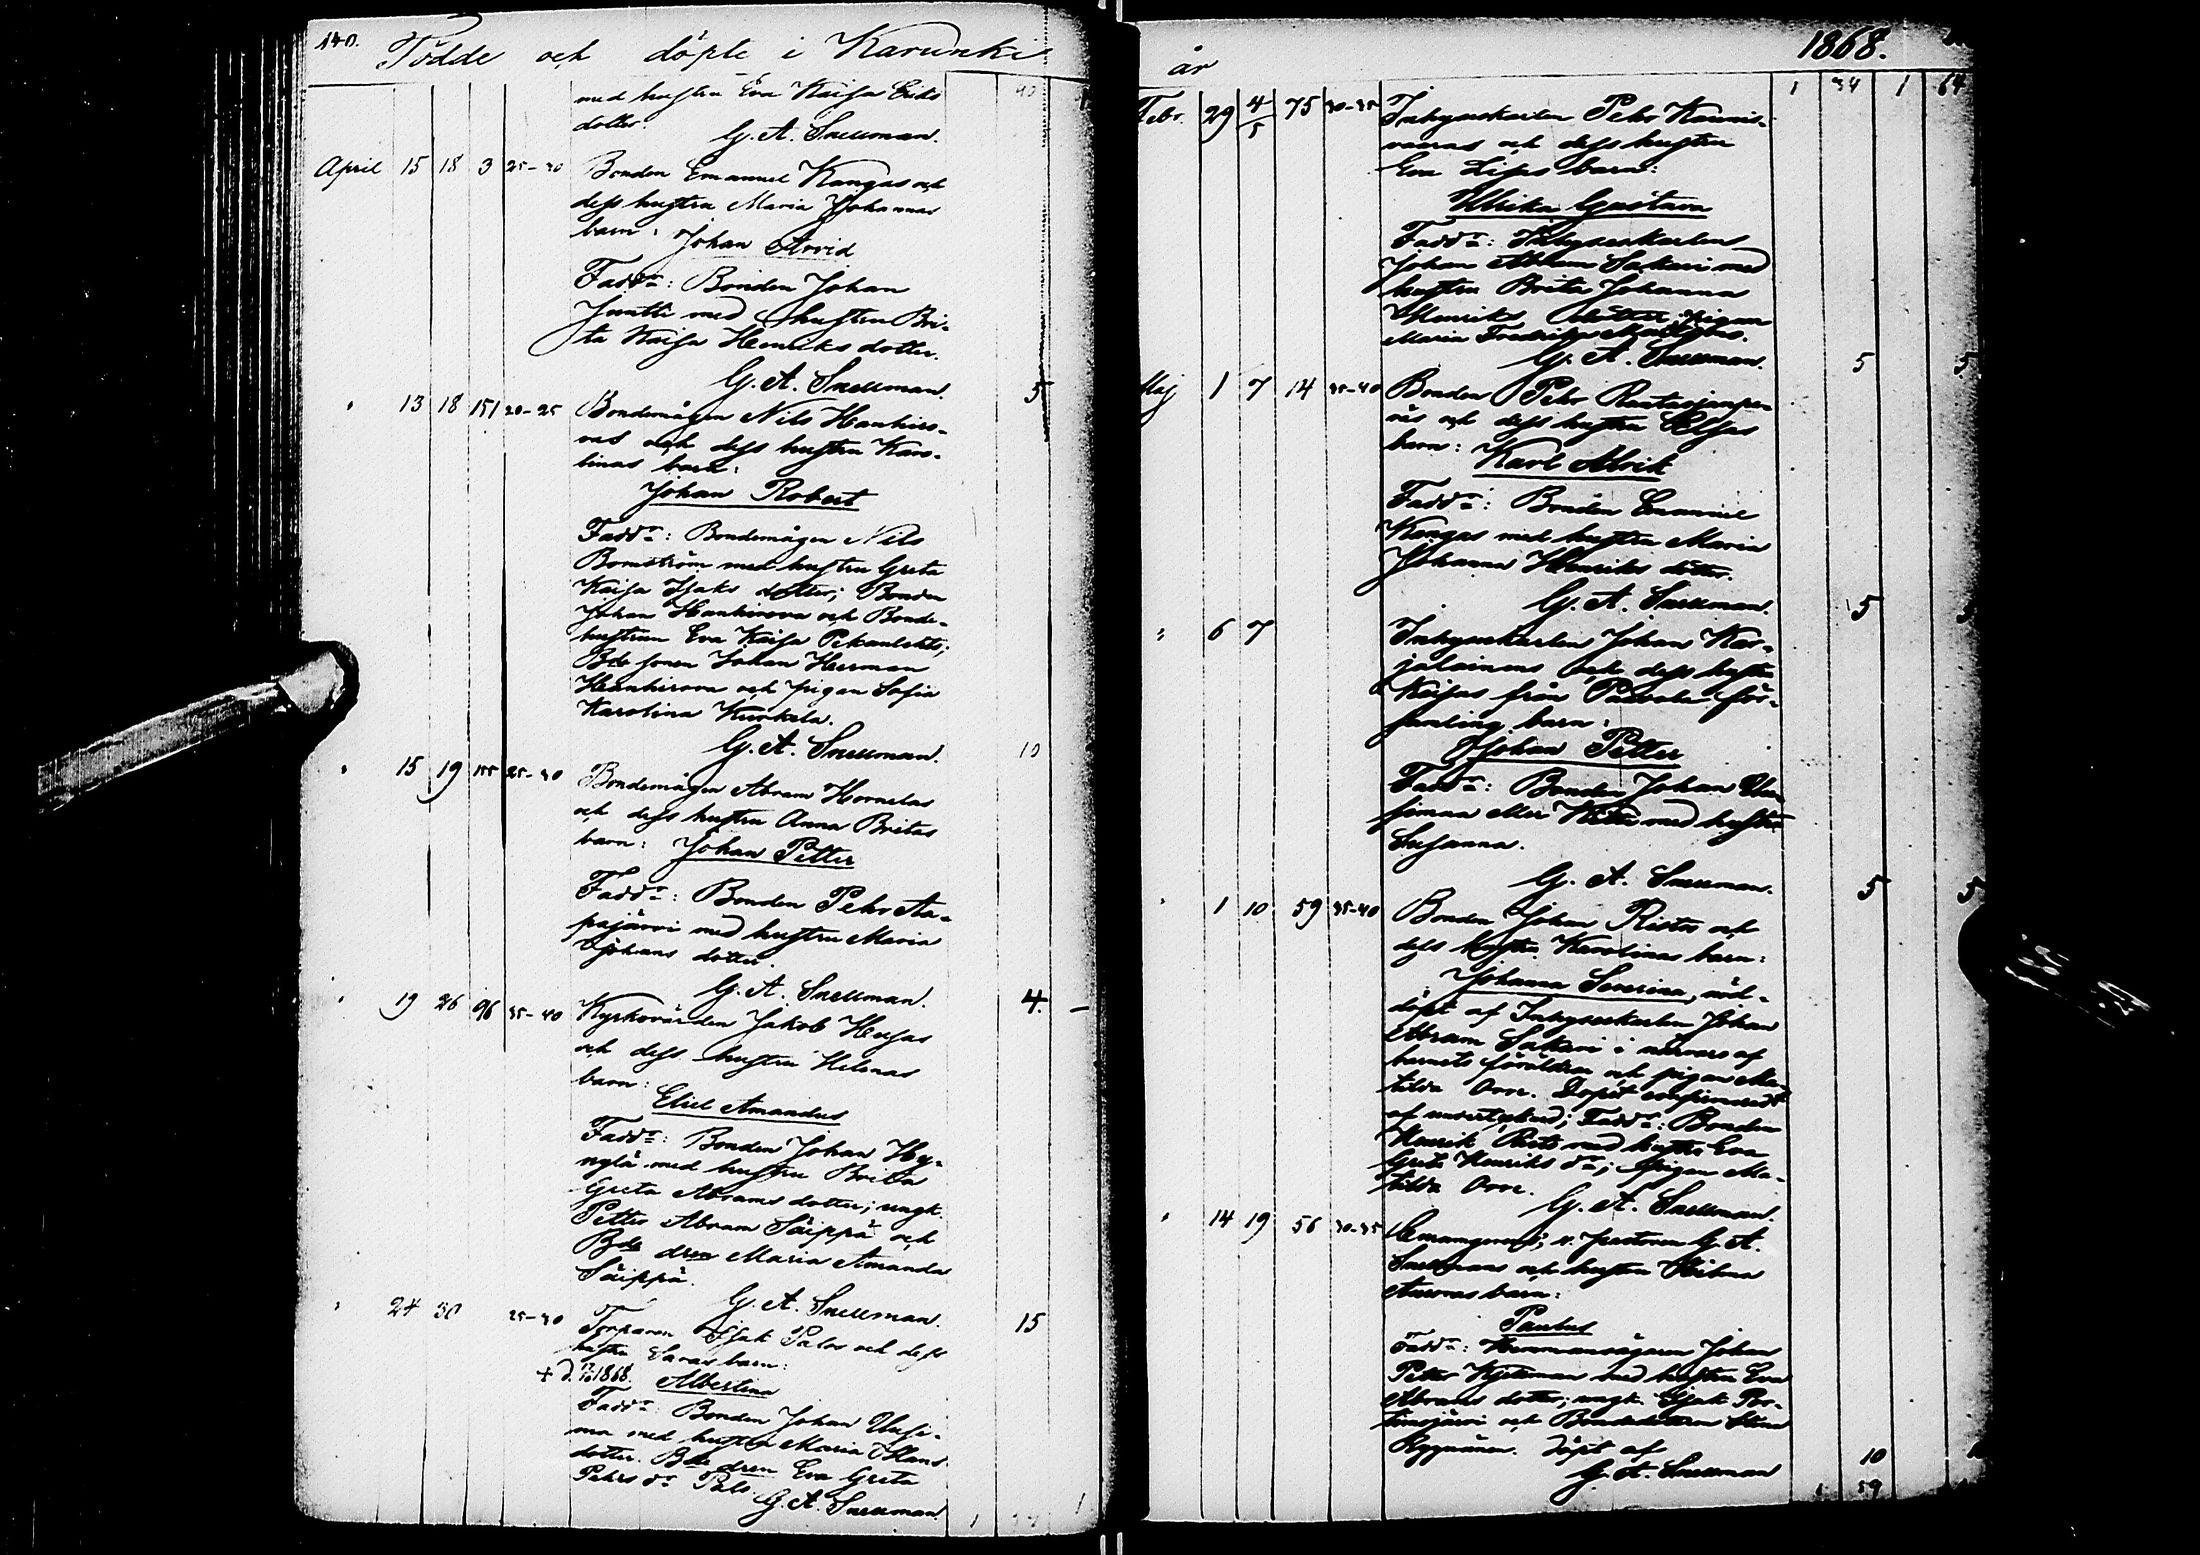 140.
Födde och döpte i Karunki
med hustru Eva Kaisa Eriks
dotter.
G. A. Snellman.
April 15 18 3 25-30 Bonden Emanuel Kangas och
dess hustru Maria Johannas
barn: Johan Arvid
Faddr: Bonden Johan
Juntti med hustru Bri-
ta Kaisa Henriks dotter.
G. A. Snellman. 5
" 13 18 151 20-25 Bondemågen Nils Hanhiro-
vas och dess hustru Karo-
linas barn:
Johan Robert
Faddr: Bondemågen Nils
Bomström med hustru Greta
Kaisa Isaks dotter; Bonden
Johan Hanhirova och Bonde-
hustrun Eva Kaisa
Bde sonen Johan Herman
Hanhirova och pigan Sofia
Karolina Kurkela.
G. A. Snellman. 10
" 15 19 155 25-30 Bondemågen Abram Hornelas
och dess hustru Anna Britas
barn: Johan Petter
Faddr: Bonden Pehr Aa-
pajärvi med hustru Maria
Johans dotter.
G. A. Snellman. 4
" 19 26 96 35-40 Kyrkovärden Jakob
och dess hustru Helenas
barn:
Eliel Amandus
Faddr: Bonden Johan Hy-
nglä med hustru Brita
Greta Abrams dotter; ungk.
Petter Abram Säippä och
Bde dren Maria Amanda
Säippä.
G. A. Snellman. 15
" 24 30 25-30 Torparen Isak Palos och dess
hustru Saras barn:
+ d. 1868. Albertina
Faddr: Bonden Johan Uusi-
maa med hustru Maria Hans
dotter. Bde dren Eva Greta
Pehrs dr Palo.
G. A. Snellman
år 1868.
1 34 1 64
Febr. 29 4/5 75 30-35 Inhyseskarlen Pehr Kaunis-
vaaras och dess hustru
Eva Lisas barn:
Ulrika Gustava
Faddr: Inhyseskarlen
Johan Abram Sakari med
hustru Brita Johanna
Henriks dotter; pigan
Maria Fredrika
G. A. Snellman. 5 5
Maj 1 7 14 35-40 Bonden Pehr Rautiojanpe-
räs och dess hustru Elsas
barn:
Karl Alrik
Faddr: Bonden Emanuel
Kangas med hustru Maria
Johanna Henriks dotter.
G. A. Snellman. 5 5
" 6 7 Inhyseskarlen Johan Kar-
jalainens och dess hustru
Kaisas från Paavola för-
samling barn:
Johan Petter
Faddr: Bonden Johan Uu-
simaa eller med hustru
Susanna.
G. A. Snellman. 5 5
" 1 10 59 35-40 Bonden Johan Ristos och
dess hustru Karolinas barn:
Johanna Severina, nöd-
döpt af Inhyseskarlen Johan
Abram Sakari i närvaro af
barnets föräldrar och pigan Ma-
tilda Orre. Dopet confirmeradt
af undertecknad; Faddr: Bonden
Henrik med hustru Eva
Greta Henriks dr; Pigan Ma-
tilda Orre.
G. A. Snellman.
" 14 19 56 30-35 v. pastoren G. A.
Snellmans och hustru Hilma
Auroras barn:
Paulus
Faddr: Hemmansägaren Johan
Petter med hustru Eva
Abrams dotter; ungk. Isak Por-
timojärvi och Bondedottern Stina
Ryynänen. Döpt af
G. A. Snellman 10
59